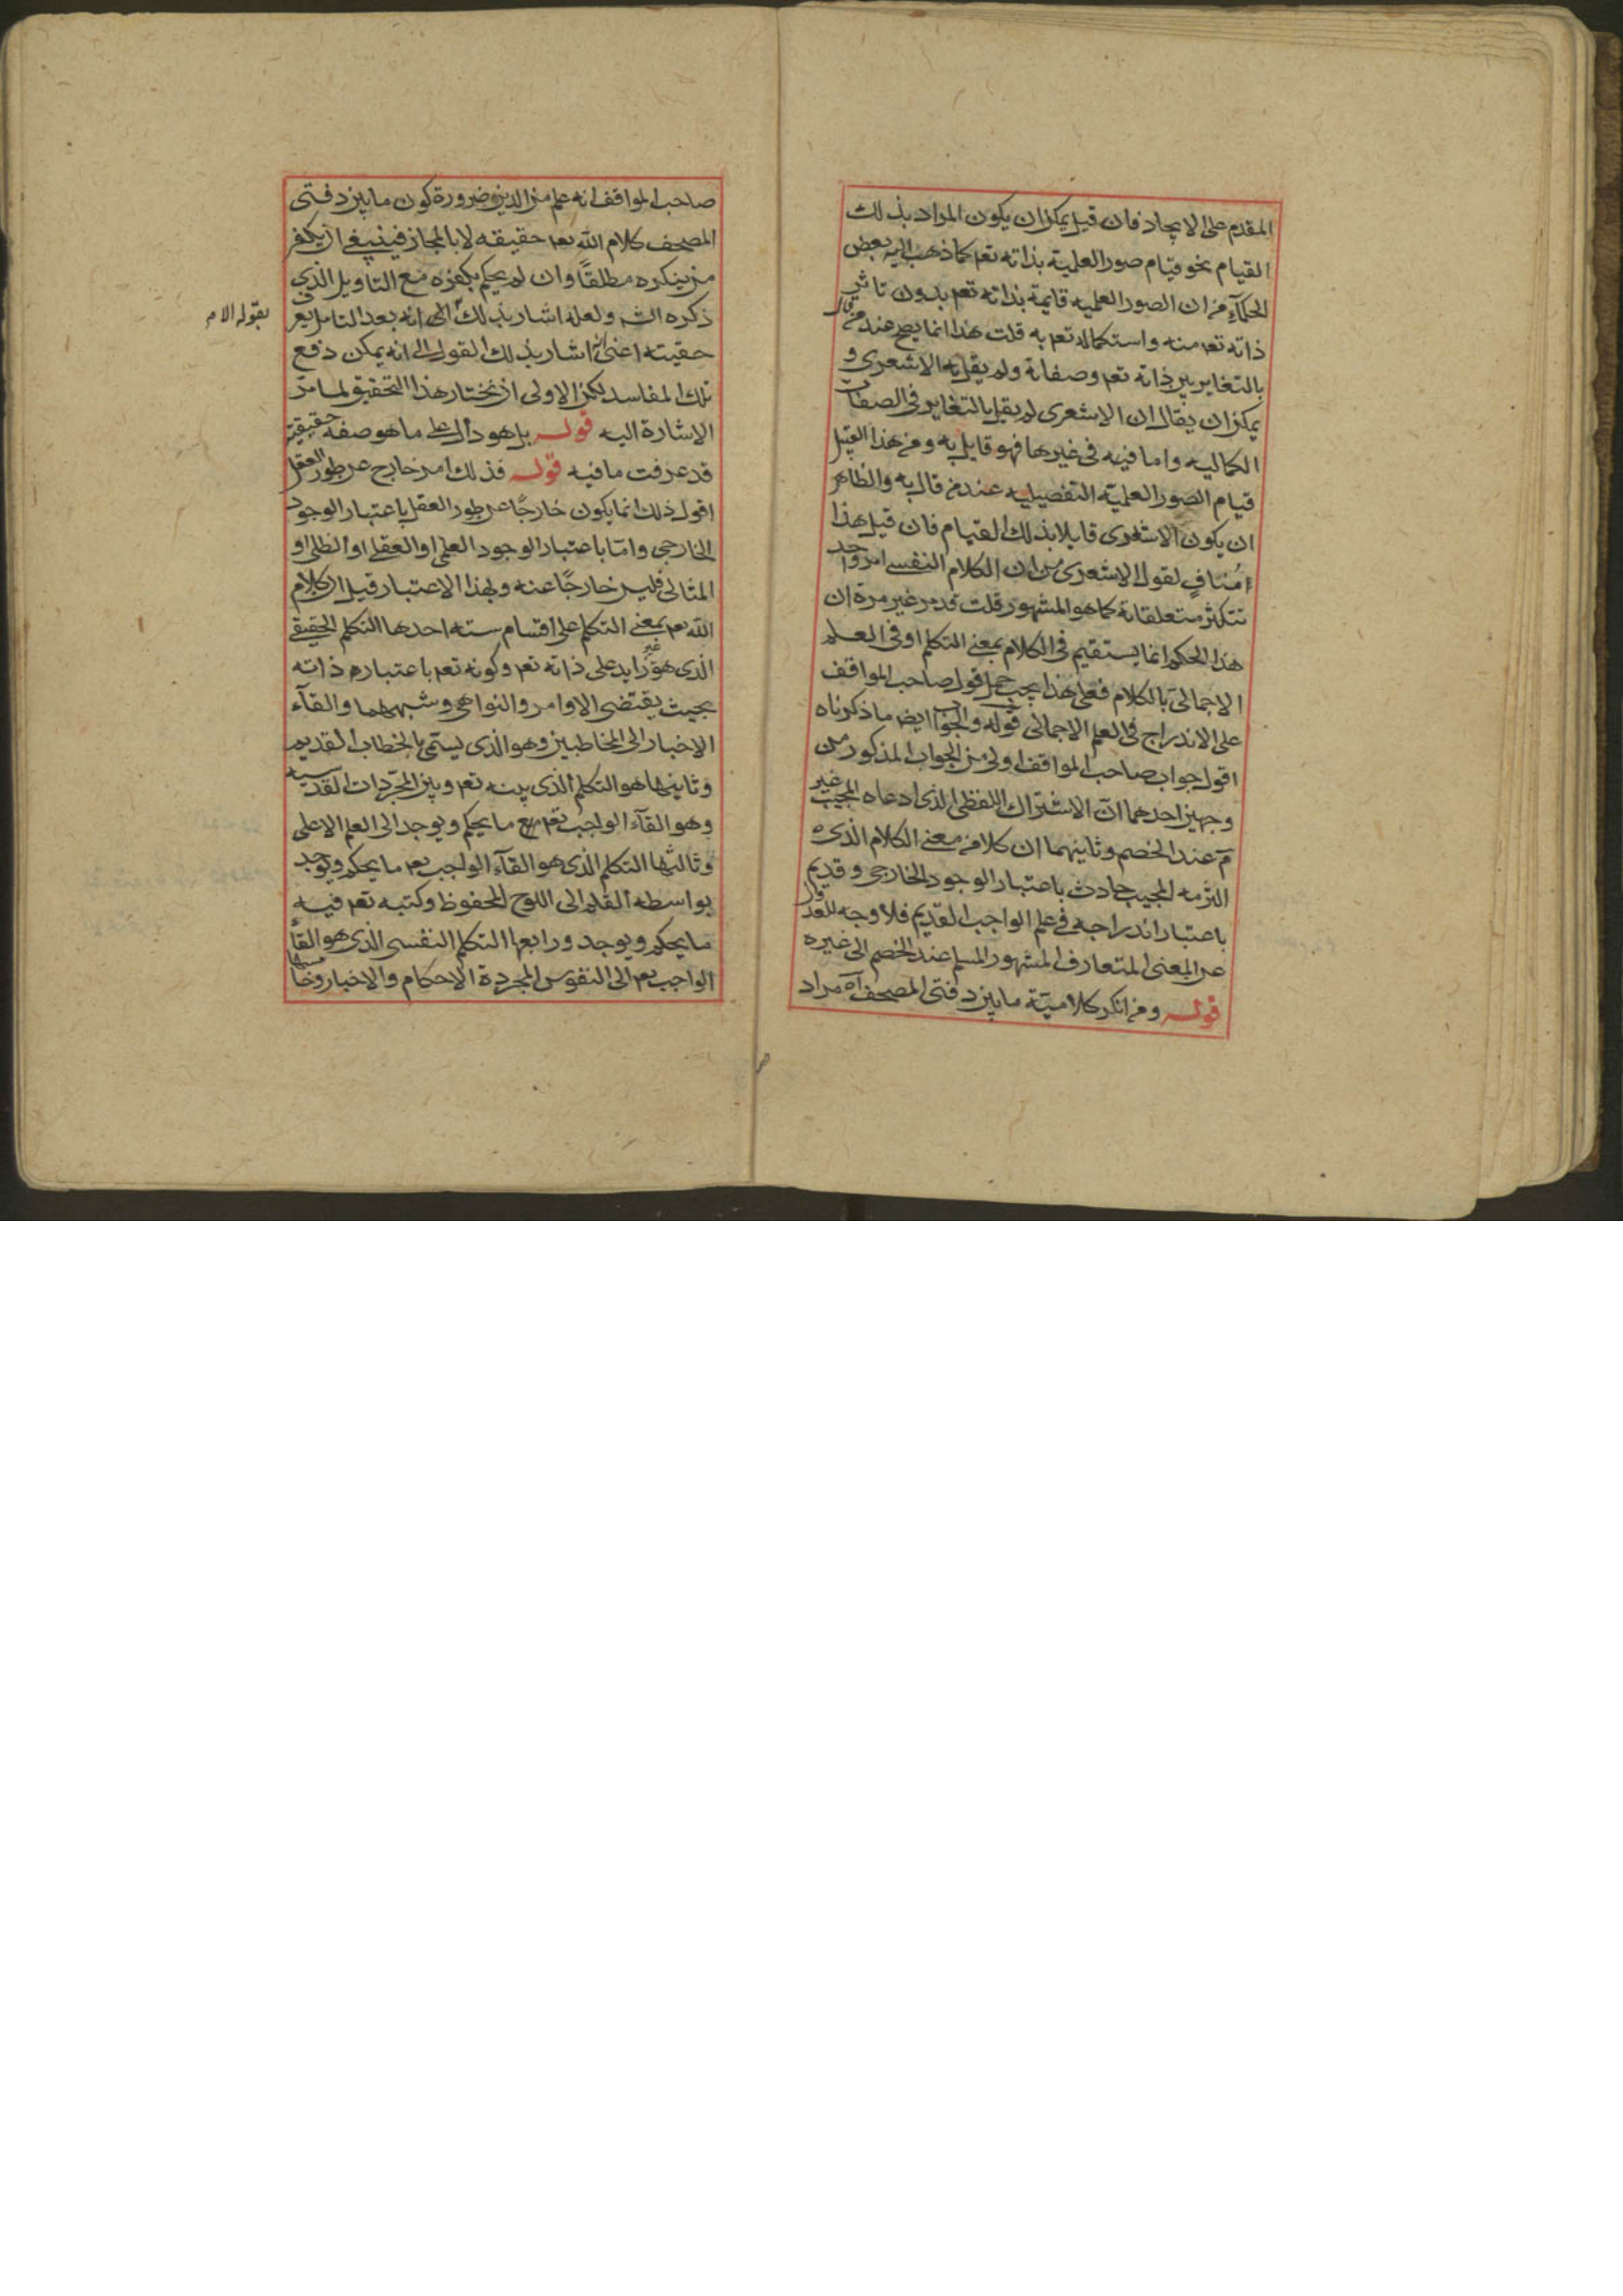 المقدم على الايجاد فان قيل يمكن ان يكون المراد بذلك
القيام نحو قيام صور العلمية بذاته تعم كما ذهب اليه بعض
الحكمآء من ان الصور العلميه قايمة بذاته تعم بدون تاثير
ذاته تعم منه واستكماله تعم به قلت هذا انما يصح عند من قال
بالتغاير بين ذاته تعم وصفاته ولم يقل به الاشعرى و
يمكن ان يقال ان الاشعرى لم يقل بالتغاير فى الصفات
الكماليه واما فيه فى غيرها فهو قايل به ومن هذا القبيل
قيام الصور العلميّة التفصيليه عند من قال به والظاهر
ان يكون الاشعرى قايلا بذلك القيام فان قيل هذا
مُنافٍ لقول الاشعرى من ان الكلام النفسى امر واحد
تتكثر متعلقاته كما هو المشهور قلت قد مر غير مرة ان
هذا الحكم انما يستقيم فى الكلام بمعنى التكلم او فى العلم
الاجمالىّ بالكلام فعلى هذا يجب حمل قول صاحب المواقف
على الاندراج فى العلم الاجمالى قوله والجواب ايضا ما ذكرناه
اقول جواب صاحب المواقف اولى من الجواب المذكور من
وجهين احدهما انّ الاشتراك اللفظى الذى ادعاه المجيب غير
مّ عند الخصم وثانيهما ان كلامه معنى الكلام الذى
التزمه المجيب حادث باعتبار الوجود الخارجى وقديم
باعتبار اندراجه فى علم الواجب القديم فلا وجه للعدول
عن المعنى المتعارف المشهور المسلم عند الخصم الى غيره
قوله ومن انكر كلاميّة ما بين دفتى المصحف آه مراد
صاحب المواقف انه علم من الدين ضرورة كون ما بين دفتى
المصحف كلام الله تعم حقيقه لا بالمجاز فينبغى ان يكفر
من ينكره مطلقًا وان لم يحكم بكفره مع التاويل الذى
ذكره الشه ولعله اشار بذلك الى انه بعد التامل يعرف
بقوله الام
حقيته اعنى انه اشار بذلك القول الى انه يمكن دفع
تلك المفاسد لكن الاولى ان نختار هذا التحقيق لما مرّ
الاشارة اليه قوله بل هو دال على ما هو صفه حقيقية
قد عرفت ما فيه قوله فذلك امر خارج عن طور العقل
اقول ذلك انما يكون خارجًا عن طور العقل باعتبار الوجود
الخارجى وامّا باعتبار الوجود العلمى او العقلى او الظلى او
المثالى فليس خارجًا عنه وبهذا الاعتبار قيل ان كلام
الله تعم بمعنى التكلم على اقسام سته احدها التكلم الحقيقى
الذى هو غير زايد على ذاته تعم وكونه تعم باعتبارم ذاته
بحيث يقتضى الاوامر والنواهى وشبههما والقآء
الاخبار الى المخاطبين وهو الذى يسمّى بالخطاب القديم
وثانيها هو التكلم الذى بينه تعم وبين المجرّدات القدسيه
وهو القآء الواجب تعم مع ما يحكم ويوجد الى العلم الاعلى
وثالثها التكلم الذى هو القآء الواجب تعم ما يحكم ويوجد
بواسطه القلم الى اللوح المحفوظ وكتبه تعم فيه
ما يحكم ويوجد ورابعها التكلم النفسى الذى هو القآء
الواجب تعم الى النفوس المجردة الاحكام والاخبار وخامسها